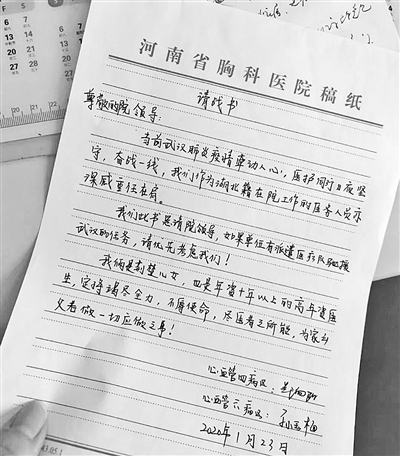 河南省胸科医院稿纸
请战书
尊敬的院领导：
当前武汉肺炎疫情牵动人心，医护同仁日夜坚
守，奋战一线，我们作为湖北籍在院工作的医务人员亦
深感重任在肩。
我们此书恳请院领导，如果单位有派遣医疗队驰援
武汉的任务，请优先考虑我们！
我俩是荆楚儿女，也是年资十年以上的高年资医
生，定将竭尽全力，不辱使命，尽医者之所能，为家乡
父老做一切应做之事！
心血管四病区：
心血管六病区：孙玉梅
2020年1月23日